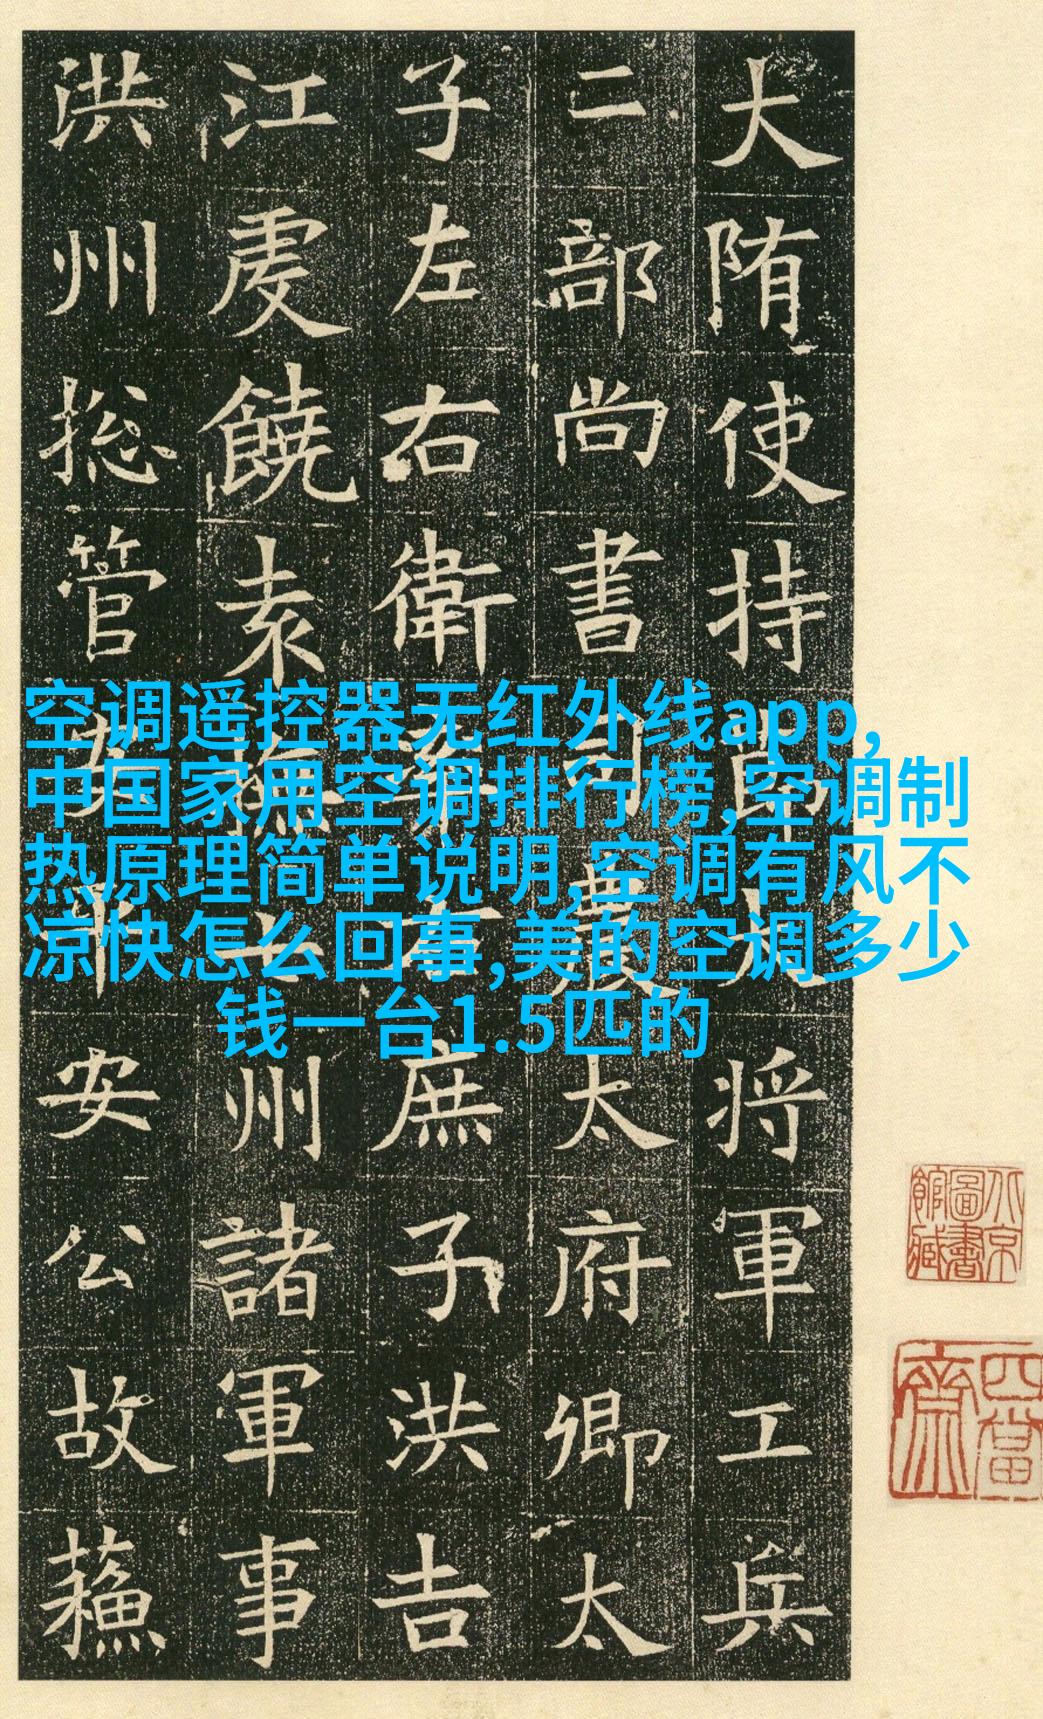 大隋使持將軍工兵
二部尚書司農太府卿太
子左右衛右庶子洪吉
江虔饒袁州諸軍事
洪州捴管安公故蘓
空调遥控器无红外线app,
中国家用空调排行榜,空调制
热原理简单说明,空调有风不
凉快怎么回事,美的空调多少
钱一台1.5匹的
北京圖書館藏
四當齋